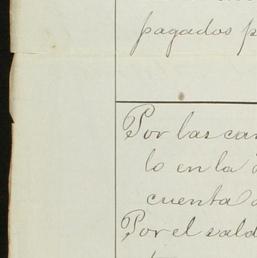 pagados p
Por las can
lo en la
cuenta
Por el sald